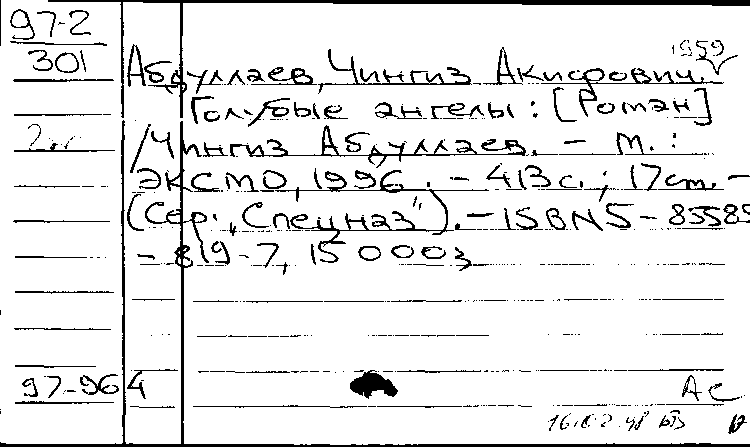 97-2
301
1959
Абдуллаев, Чингиз Акифович.
Голубые ангелы: [Роман]
2эк
/Чингиз Абдуллаев. – М.:
ЭКСМО, 1996. – 413 с.; 17 cm. –
(Сер. „Спецназ"). – ISBN 5-85585
-819-7, 15000э
97-964
АС